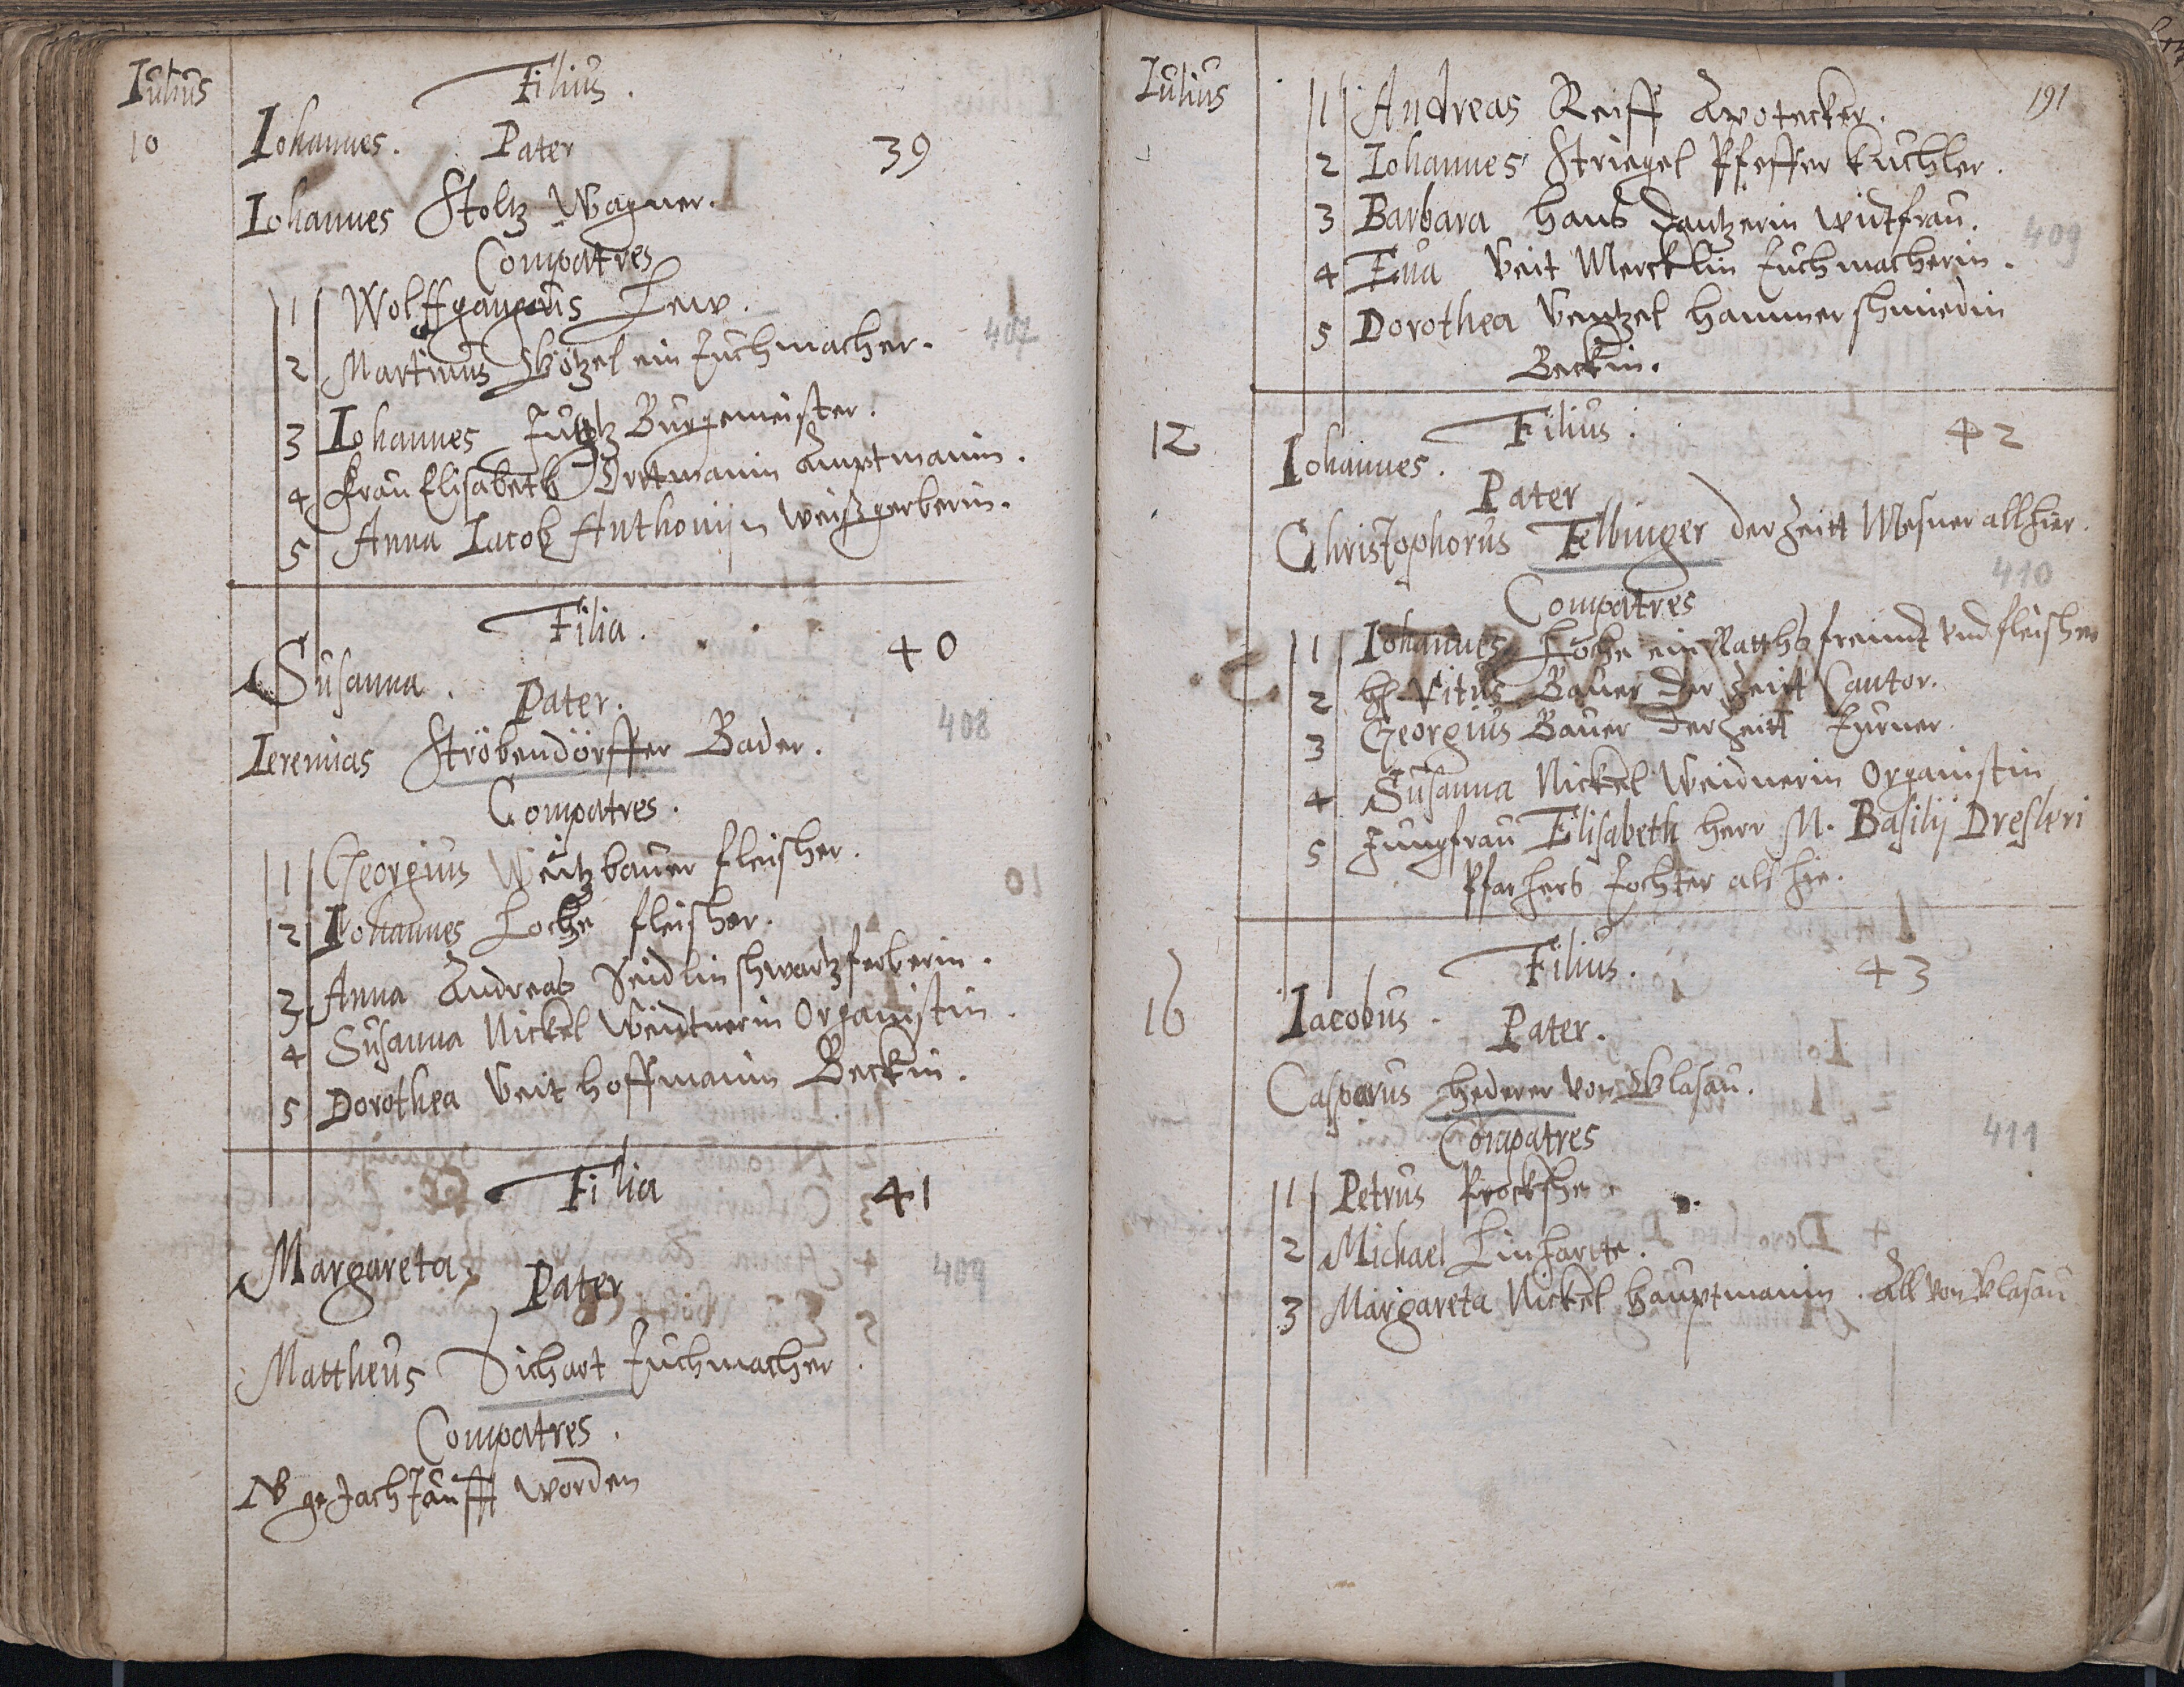 Iulius
Filius.
10
Iohannes. Pater 39
Iohannes Stoltz Wagner.
Compatres
1 Wolffgangus Lew.
407
2 Martinus Wötzel ein Tuchmacher.
3 Iohannes Burgemeister.
4 Frau Elisabeth Ortmanin Amptmanin.
5 Anna Iacob Anthonijn weißgerberin.
Filia.
Susanna. 40
Pater.
408
Ieremias Ströbendörffer Bader.
Compatres.
1 Georgius Weitzbauer fleischer.
2 Iohannes Loche fleischer.
3 Anna Andreas Seidlin schwartzferberin.
4 Susanna Nickel Weidtnerin Organistin.
5 Dorothea Veit Hoffmanin Beckin.
Filia 41
Margareta.
409
Pater
Mattheus Sichart Tuchmacher.
Compatres.
NB ge Jachtäufft worden
Iulius
191
1 Andreas Reiff Apotecker.
2 Iohannes Striegel Pfeffer Kuchler.
3 Barbara Hans Dantzerin witfrau.
409
4 Eua Veit Mercklin Tuchmacherin.
5 Dorothea Ventzel Hammerschmiedin
Beckin.
Filius. 42
12
Iohannes.
Pater
Christophorus Felbinger der Zeitt Mesner allhier.
410
Compatres
1 Iohannes Loche ein Rathsfreundt vnd fleischer
2 H. Vitus Bauer der Zeitt Cantor.
3 Georgius Bauer der Zeitt Turner.
4 Susanna Nickel Weidnerin Organistin
5 Jungfrau Elisabeth Herr M. Basilij Dresleri
Pfarhers Tochter alhie.
Filius. 43
16
Iacobus. Pater.
Casparus Hederer von Wlasau.
Compatres
411
1 Petrus
2 Michael Linharte.
3 Margareta Nickel Hauptmanin. All von Wlasau